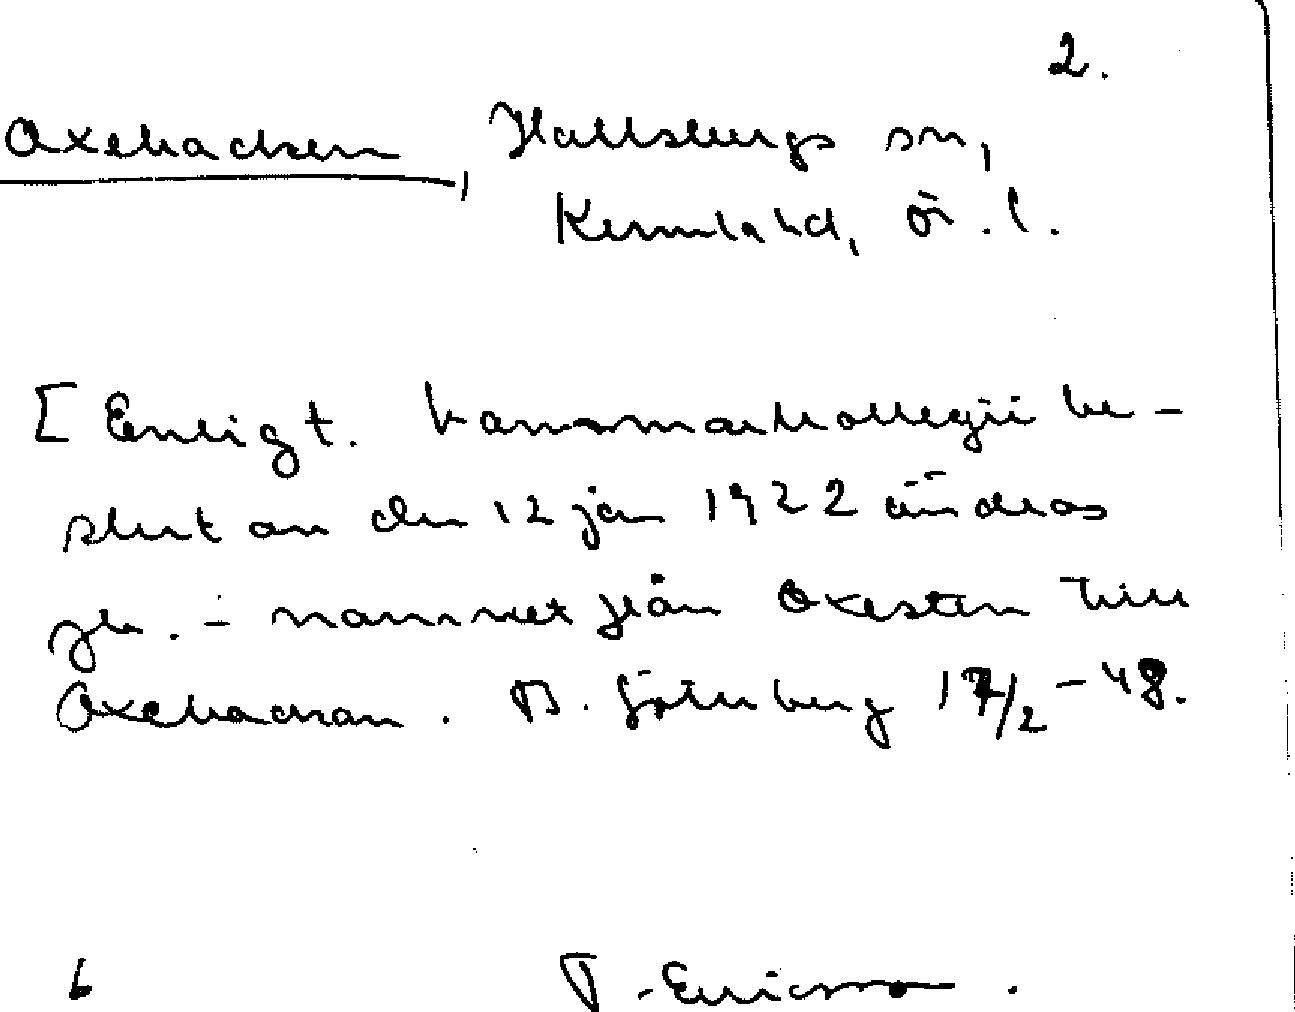 2.
Oxebacken, Hallsbergs sn,
Kumla hd, Ör. l.
[Enligt. kammarkollegii be-
slut av den 12 jan 1922 ändras
jb. - namnet från Oxesten till
Oxebackan. B. Götenberg 17/2 - 48.
b T. Ericsson.